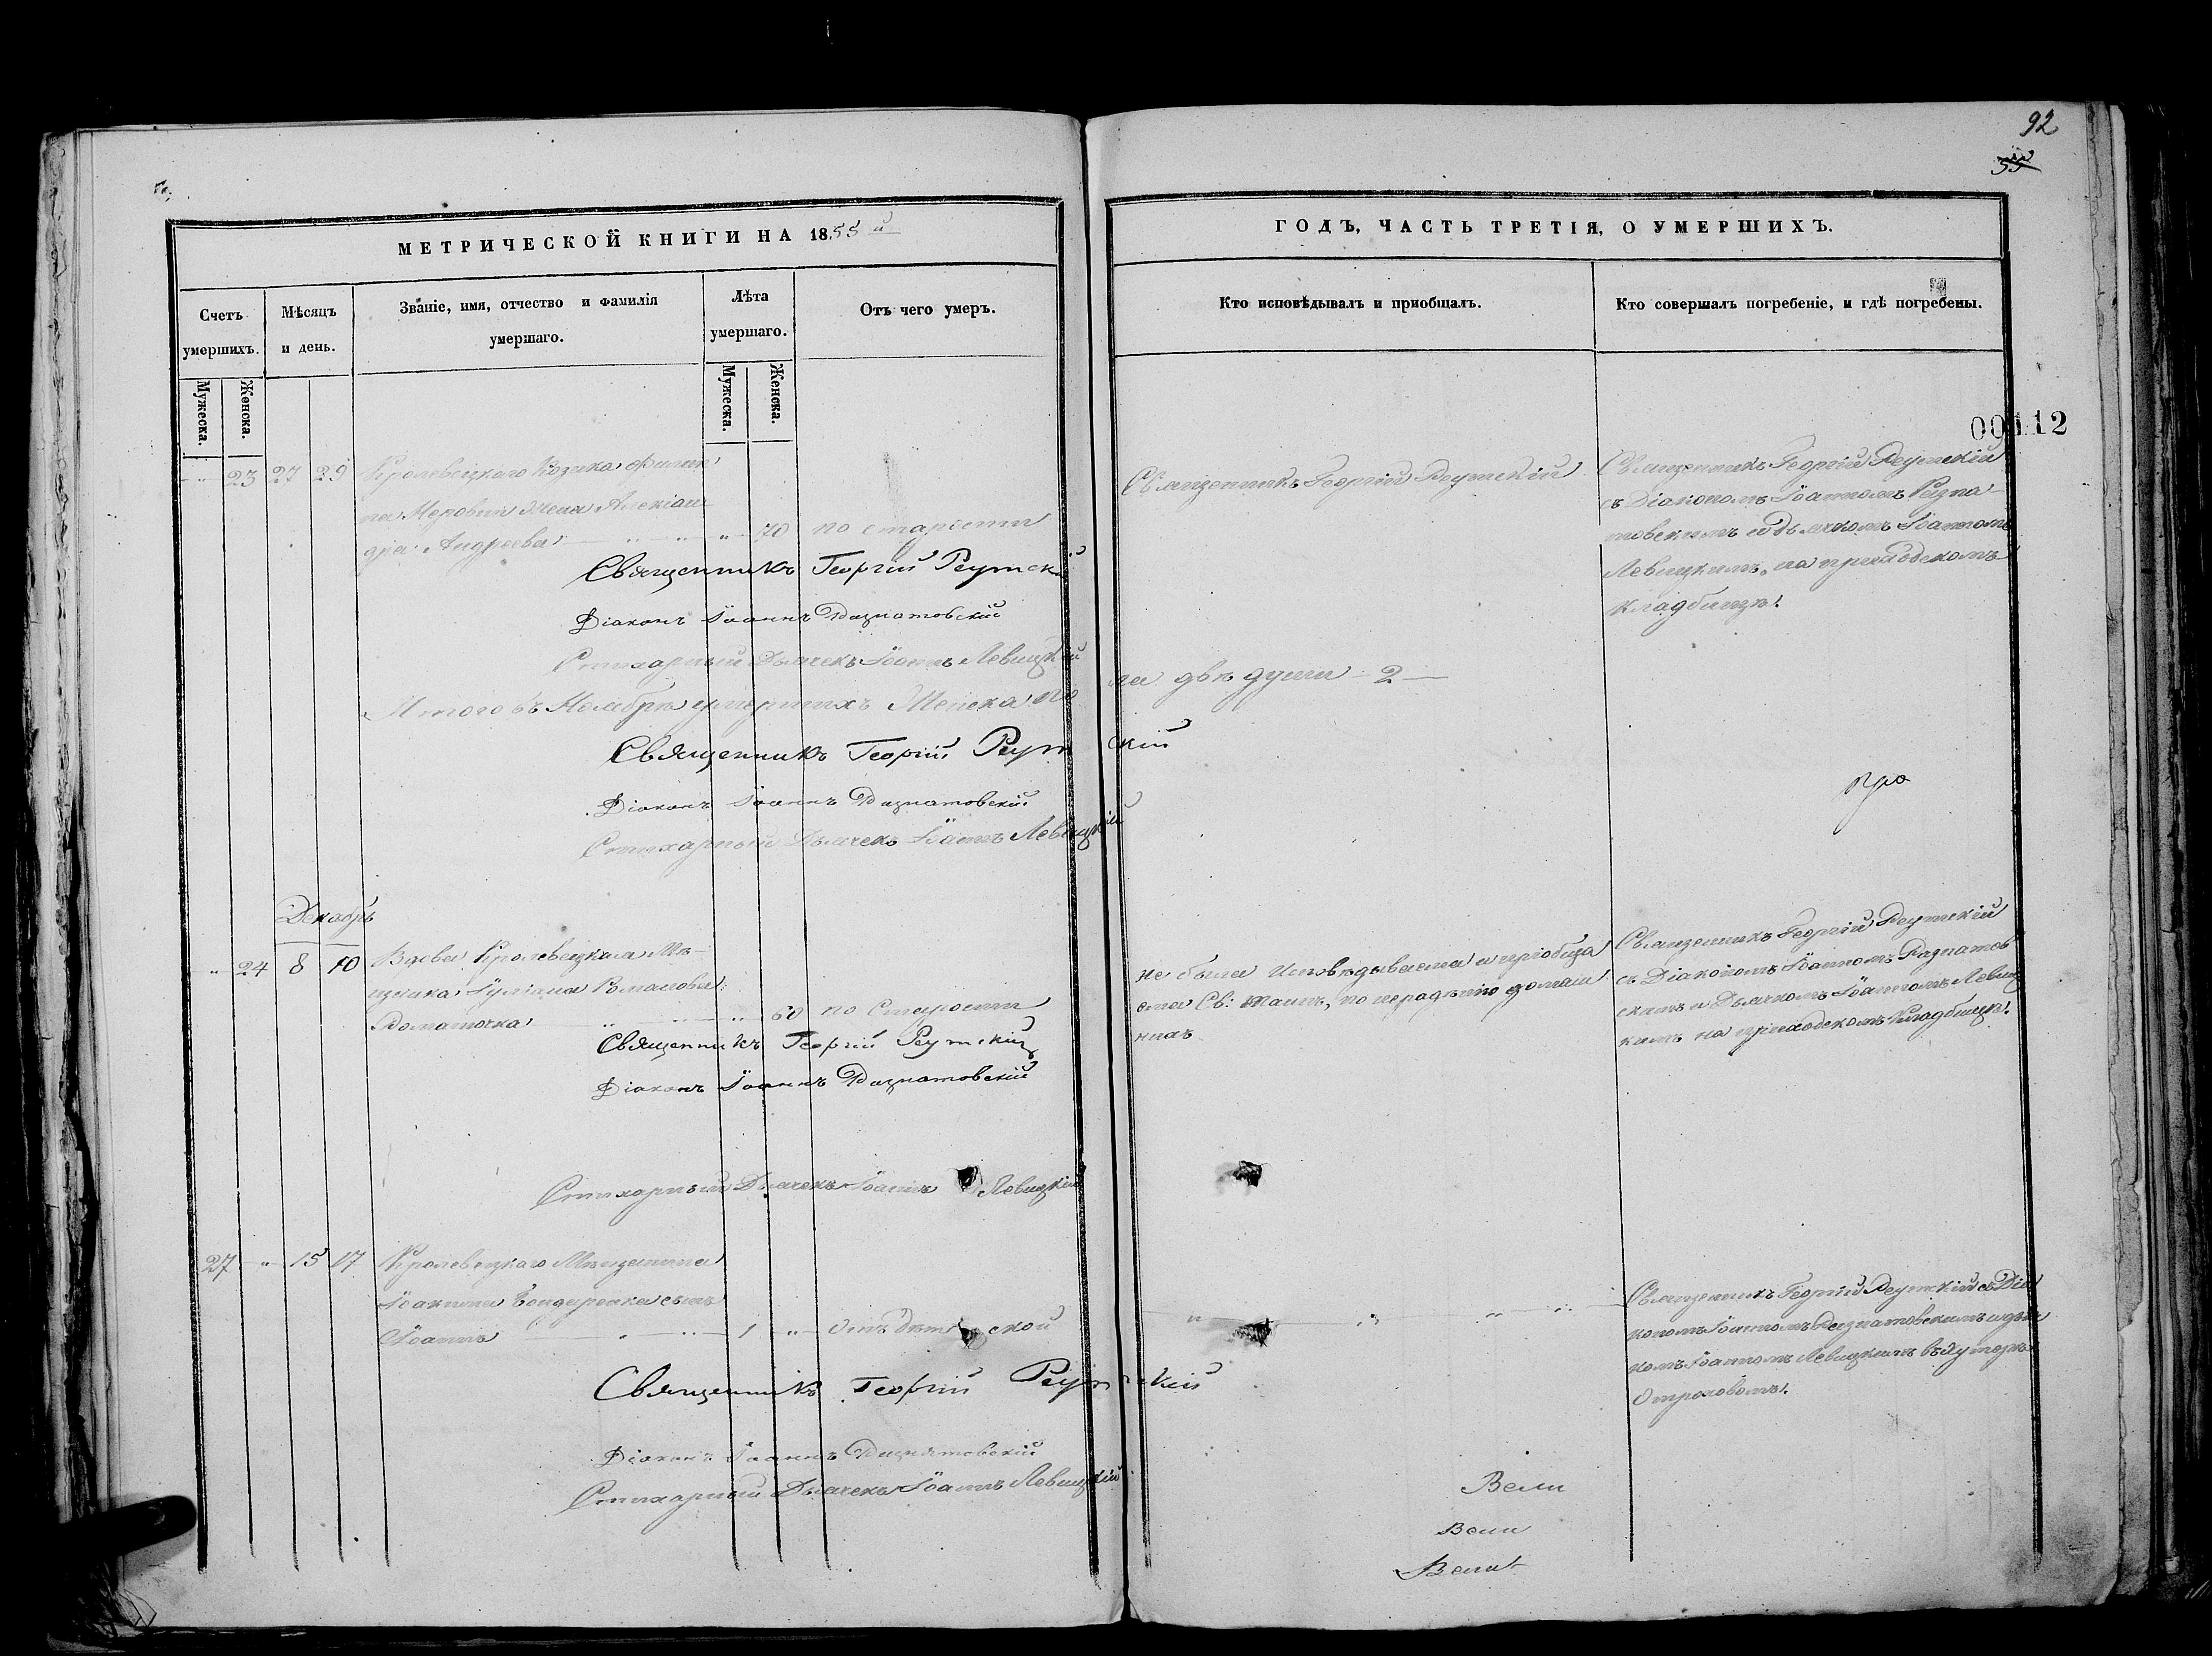 92
55
МЕТРИЧЕСКОЙ КНИГИ НА 1855й
ГОДЪ, ЧАСТЬ ТРЕТІЯ, О УМЕРШИХЪ.
Счетъ умершихъ.
Мѣсяцъ и день.
Званіе, имя, отчество и фамилія умершаго.
Лѣта умершаго.
Отъ чего умеръ.
Кто исповѣдывалъ и приобщалъ.
Кто совершалъ погребеніе, и гдѣ погребены.
Мужеска.
Женска.
Мужеска.
Женска.
00112
" 23 27 29 Кролевецкаго Козака Филип
па жена Алексан
дра Андреева " 70 по старости
Священникъ Георгій Реутскій
Діаконъ Іоаннъ Разнатовскій
Стихарный Дьячекъ Іоаннъ Левицкій
Священникъ Георгій Реутскій
Священникъ Георгій Реутскій
съ Діакономъ Іоанномъ Разна
товскимъ и дьячкомъ Іоанномъ
Левицкимъ, на приходскомъ
кладбищѣ.
Итого въ Ноябрѣ умершихъ Женска по
ла двѣ души 2
Священникъ Георгій Реутскій
Діаконъ Іоаннъ Разнатовскій
Стихарный Дьячекъ Іоаннъ Левицкій
Декабрь
" 24 8 10 Вдова Кролевецкая Мѣ
щанка Іуліана Романова
" 60 по Старости
Священникъ Георгій Реутскій
Діаконъ Іоаннъ Разнатовскій
Стихарный Дьячекъ Іоаннъ Левицкій
не была исповѣдываема и приобща
ема Св: Таинъ, по нерадѣнію домаш
нихъ
Священникъ Георгій Реутскій
съ Діакономъ Іоанномъ Разнатов
скимъ и Дьячкомъ Іоанномъ Левиц
кимъ на приходскомъ Кладбищѣ.
27 " 15 17 Кролевецкаго Мѣщанина
Іоакима Бондаренка сынъ
Іоаннъ 1 " Отъ дѣтской
Священникъ Георгій Реутскій
Діаконъ Іоаннъ Разнатовскій
Стихарный Дьячекъ Іоаннъ Левицкій
Священникъ Георгій Реутскій съ Діа
кономъ Іоанномъ Разнатовскимъ и дьяч
комъ Іоанномъ Левицкимъ